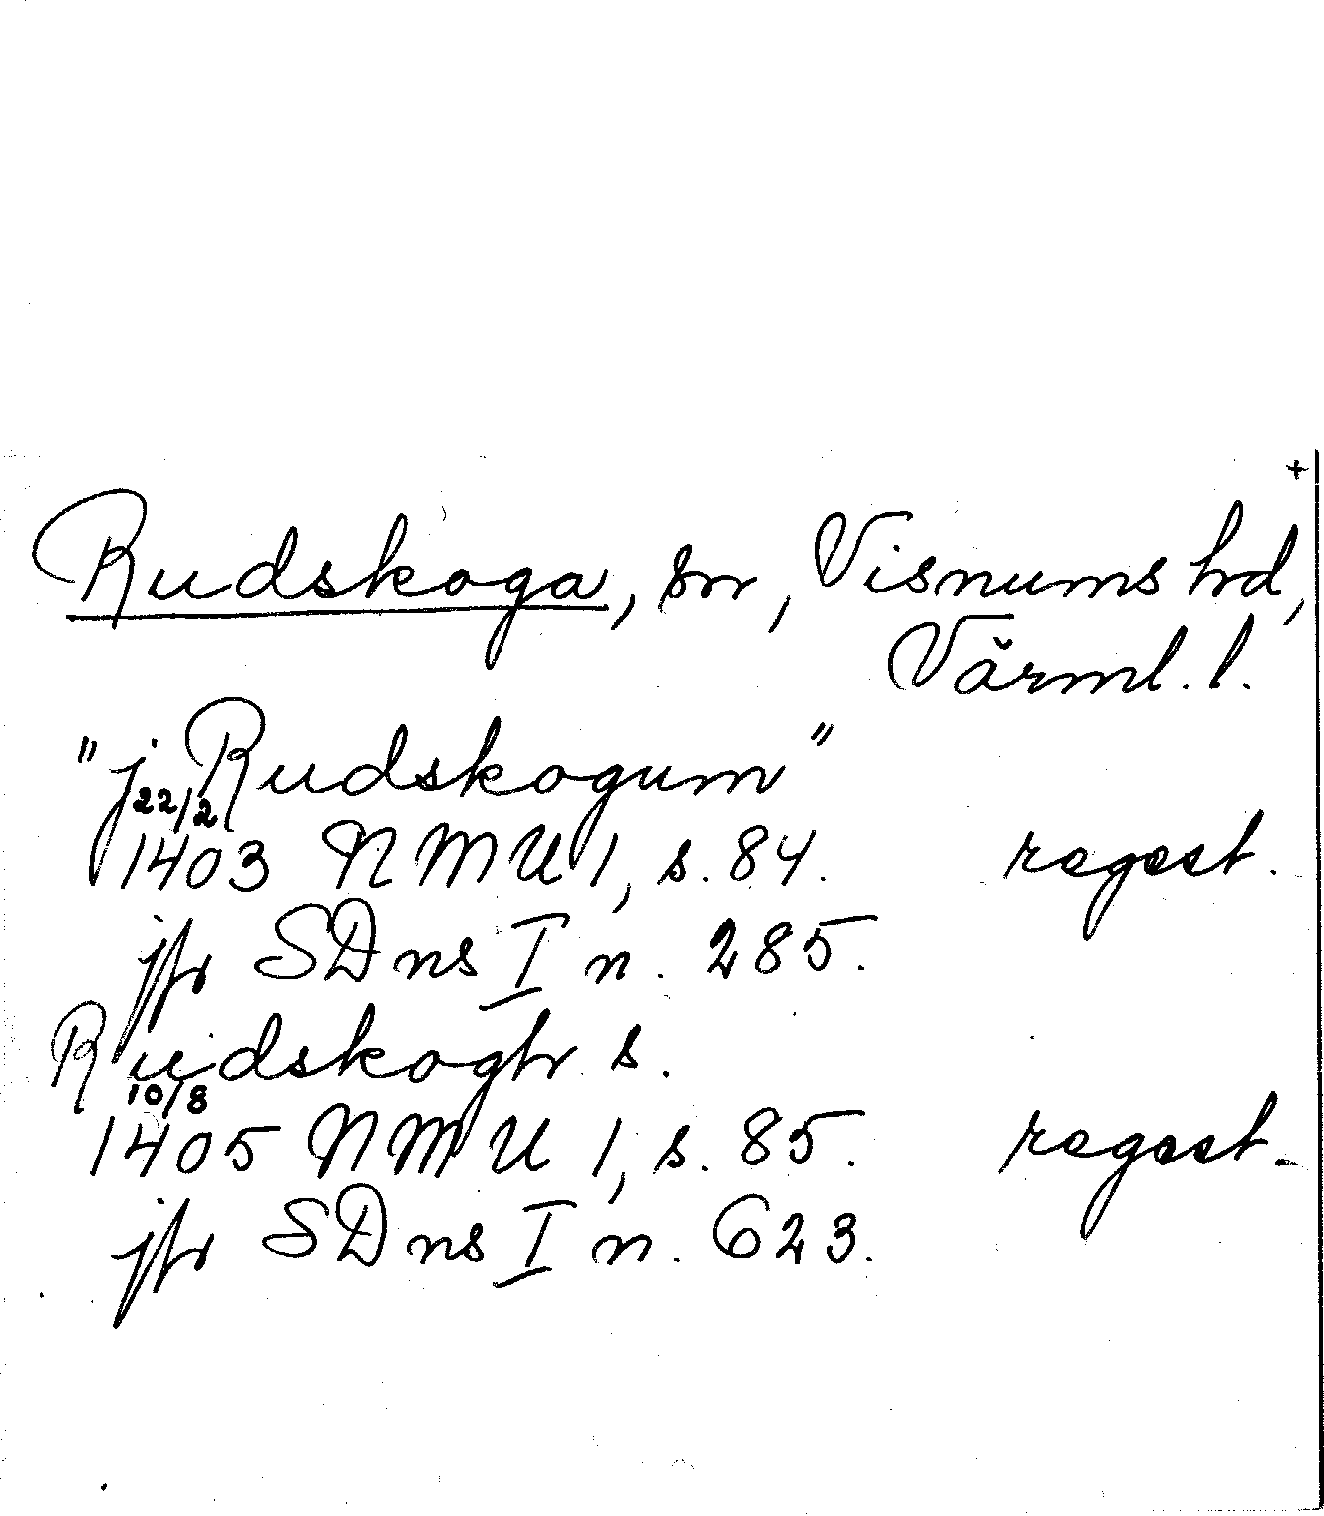 +
Rudskoga, sn, Visnums hd,
Värml. l.
"j Rudskogum"
22/2
1403 NMU 1, s. 84. regest.
jfr SD ns I n. 285.
Rudskoghr s.
10/8
1405 NMU 1, s. 85. regest.
jfr SD ns I n. 623.